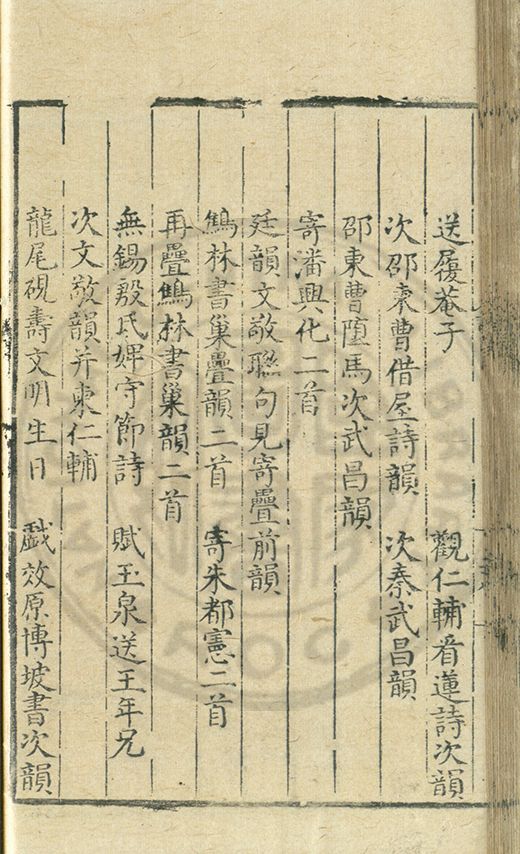 送履菴子　觀仁輔看蓮詩次韻
次邵東曹借屋詩韻　次秦武昌韻
邵東曹墮馬次武昌韻
寄潘興化二首
廷韻文敬聮句見寄疊前韻
鵂林書巢疊韻二首　寄朱都憲二首
再疊鵂林書巢韻二首
無錫殷氏婢守節詩　賦玉泉送王年兄
次文敬韻并柬仁輔
龍尾硯壽文明生日　戲效原博坡書次韻